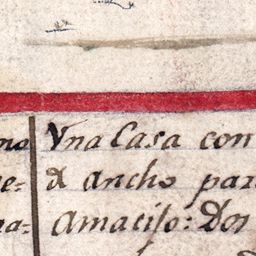 no Vna Casa con
e- d ancho par
a- Amaciso: Dos